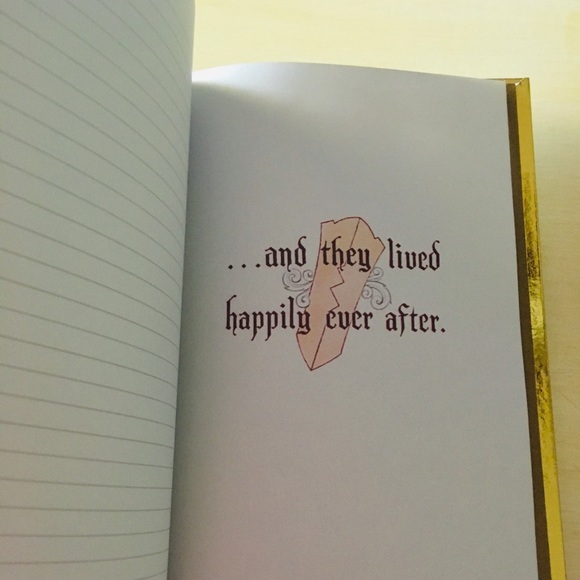 ...and they lived
happily ever after.